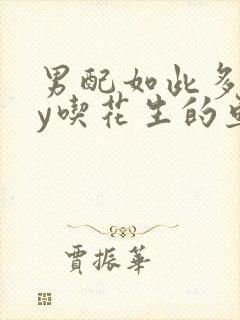 男配如此多
y喫花生的
賈振華